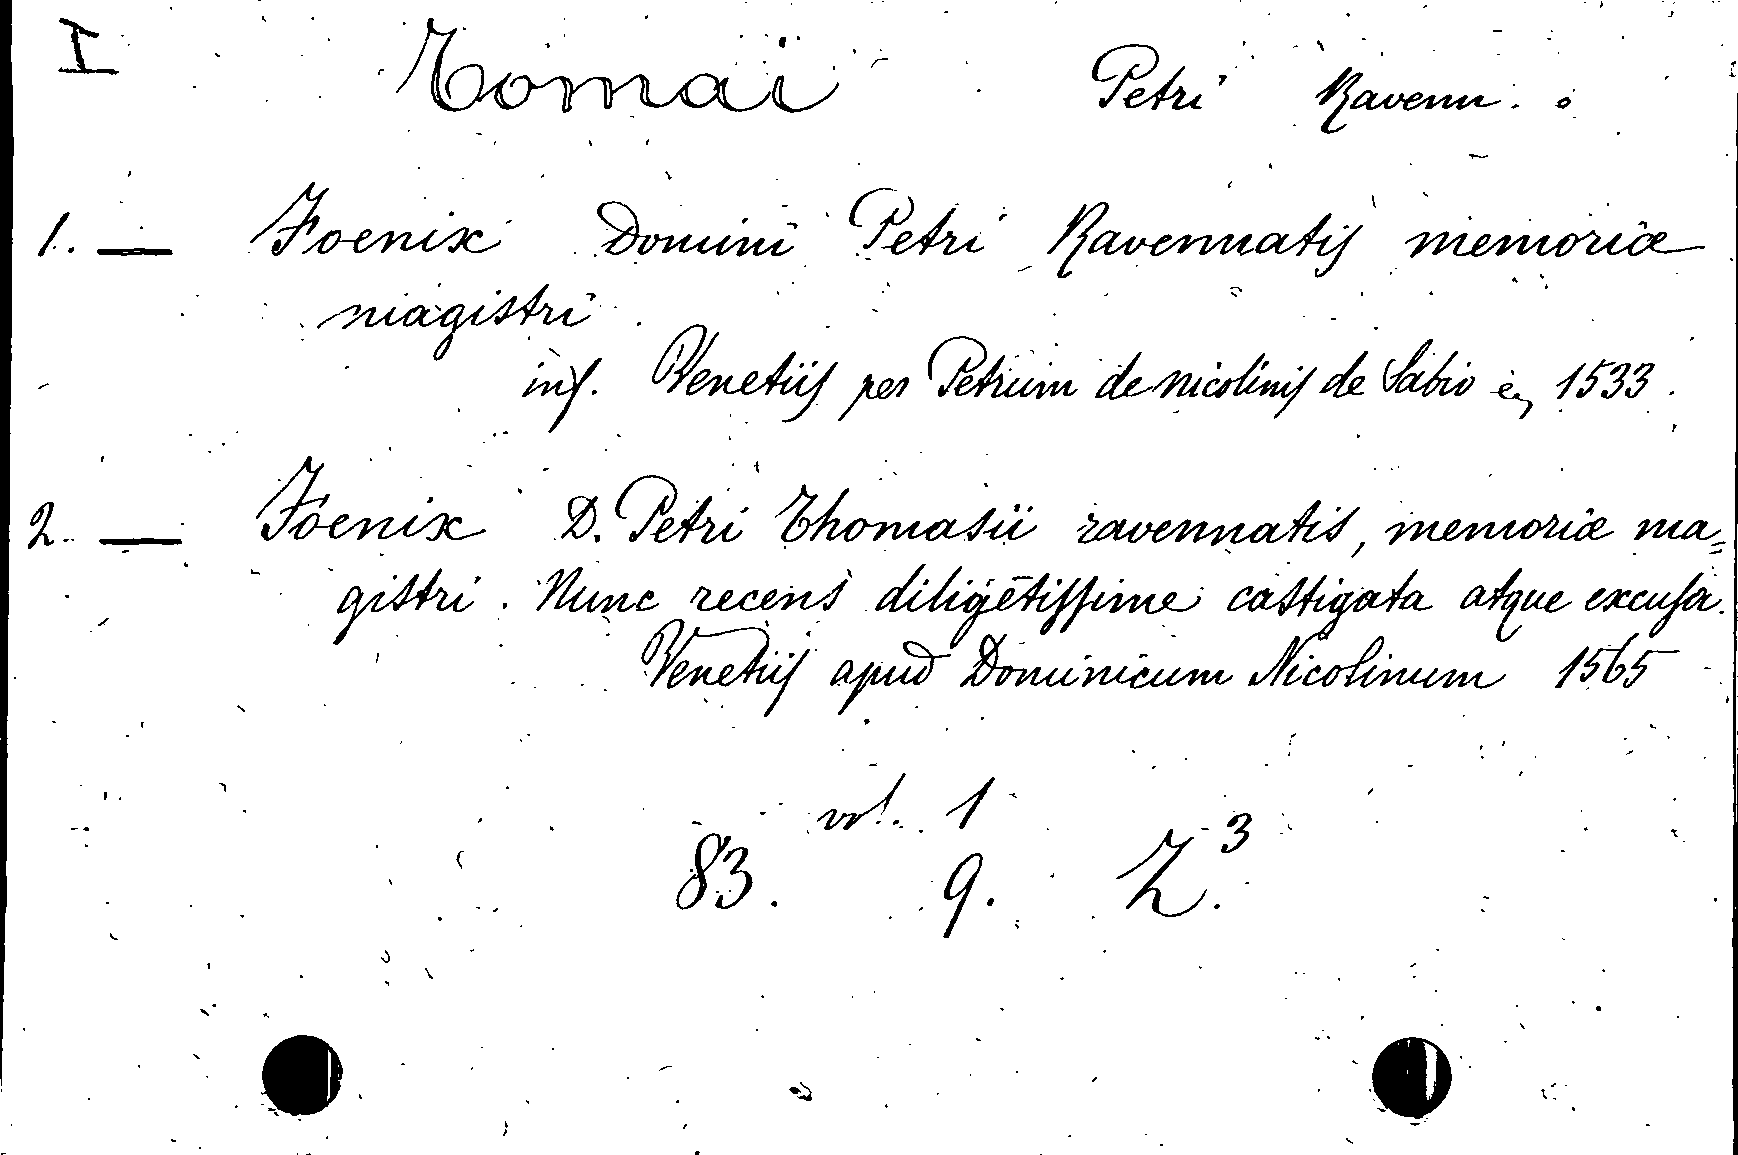 I
Tomai Petri Ravenn.
1. — Foenix Domini Petri Ravennatis memoriæ
magistri
inf. Venetiis per Petrum de nicolinis de Sabio 1533.
2. — Foenix D. Petri Thomasii ravennatis, memoriæ ma=
gistri. Nunc recens diligētissime castigata atque excusa.
Venetiis apud Dominicum Nicolinum 1565
vol. 1
83. 9. Z.3